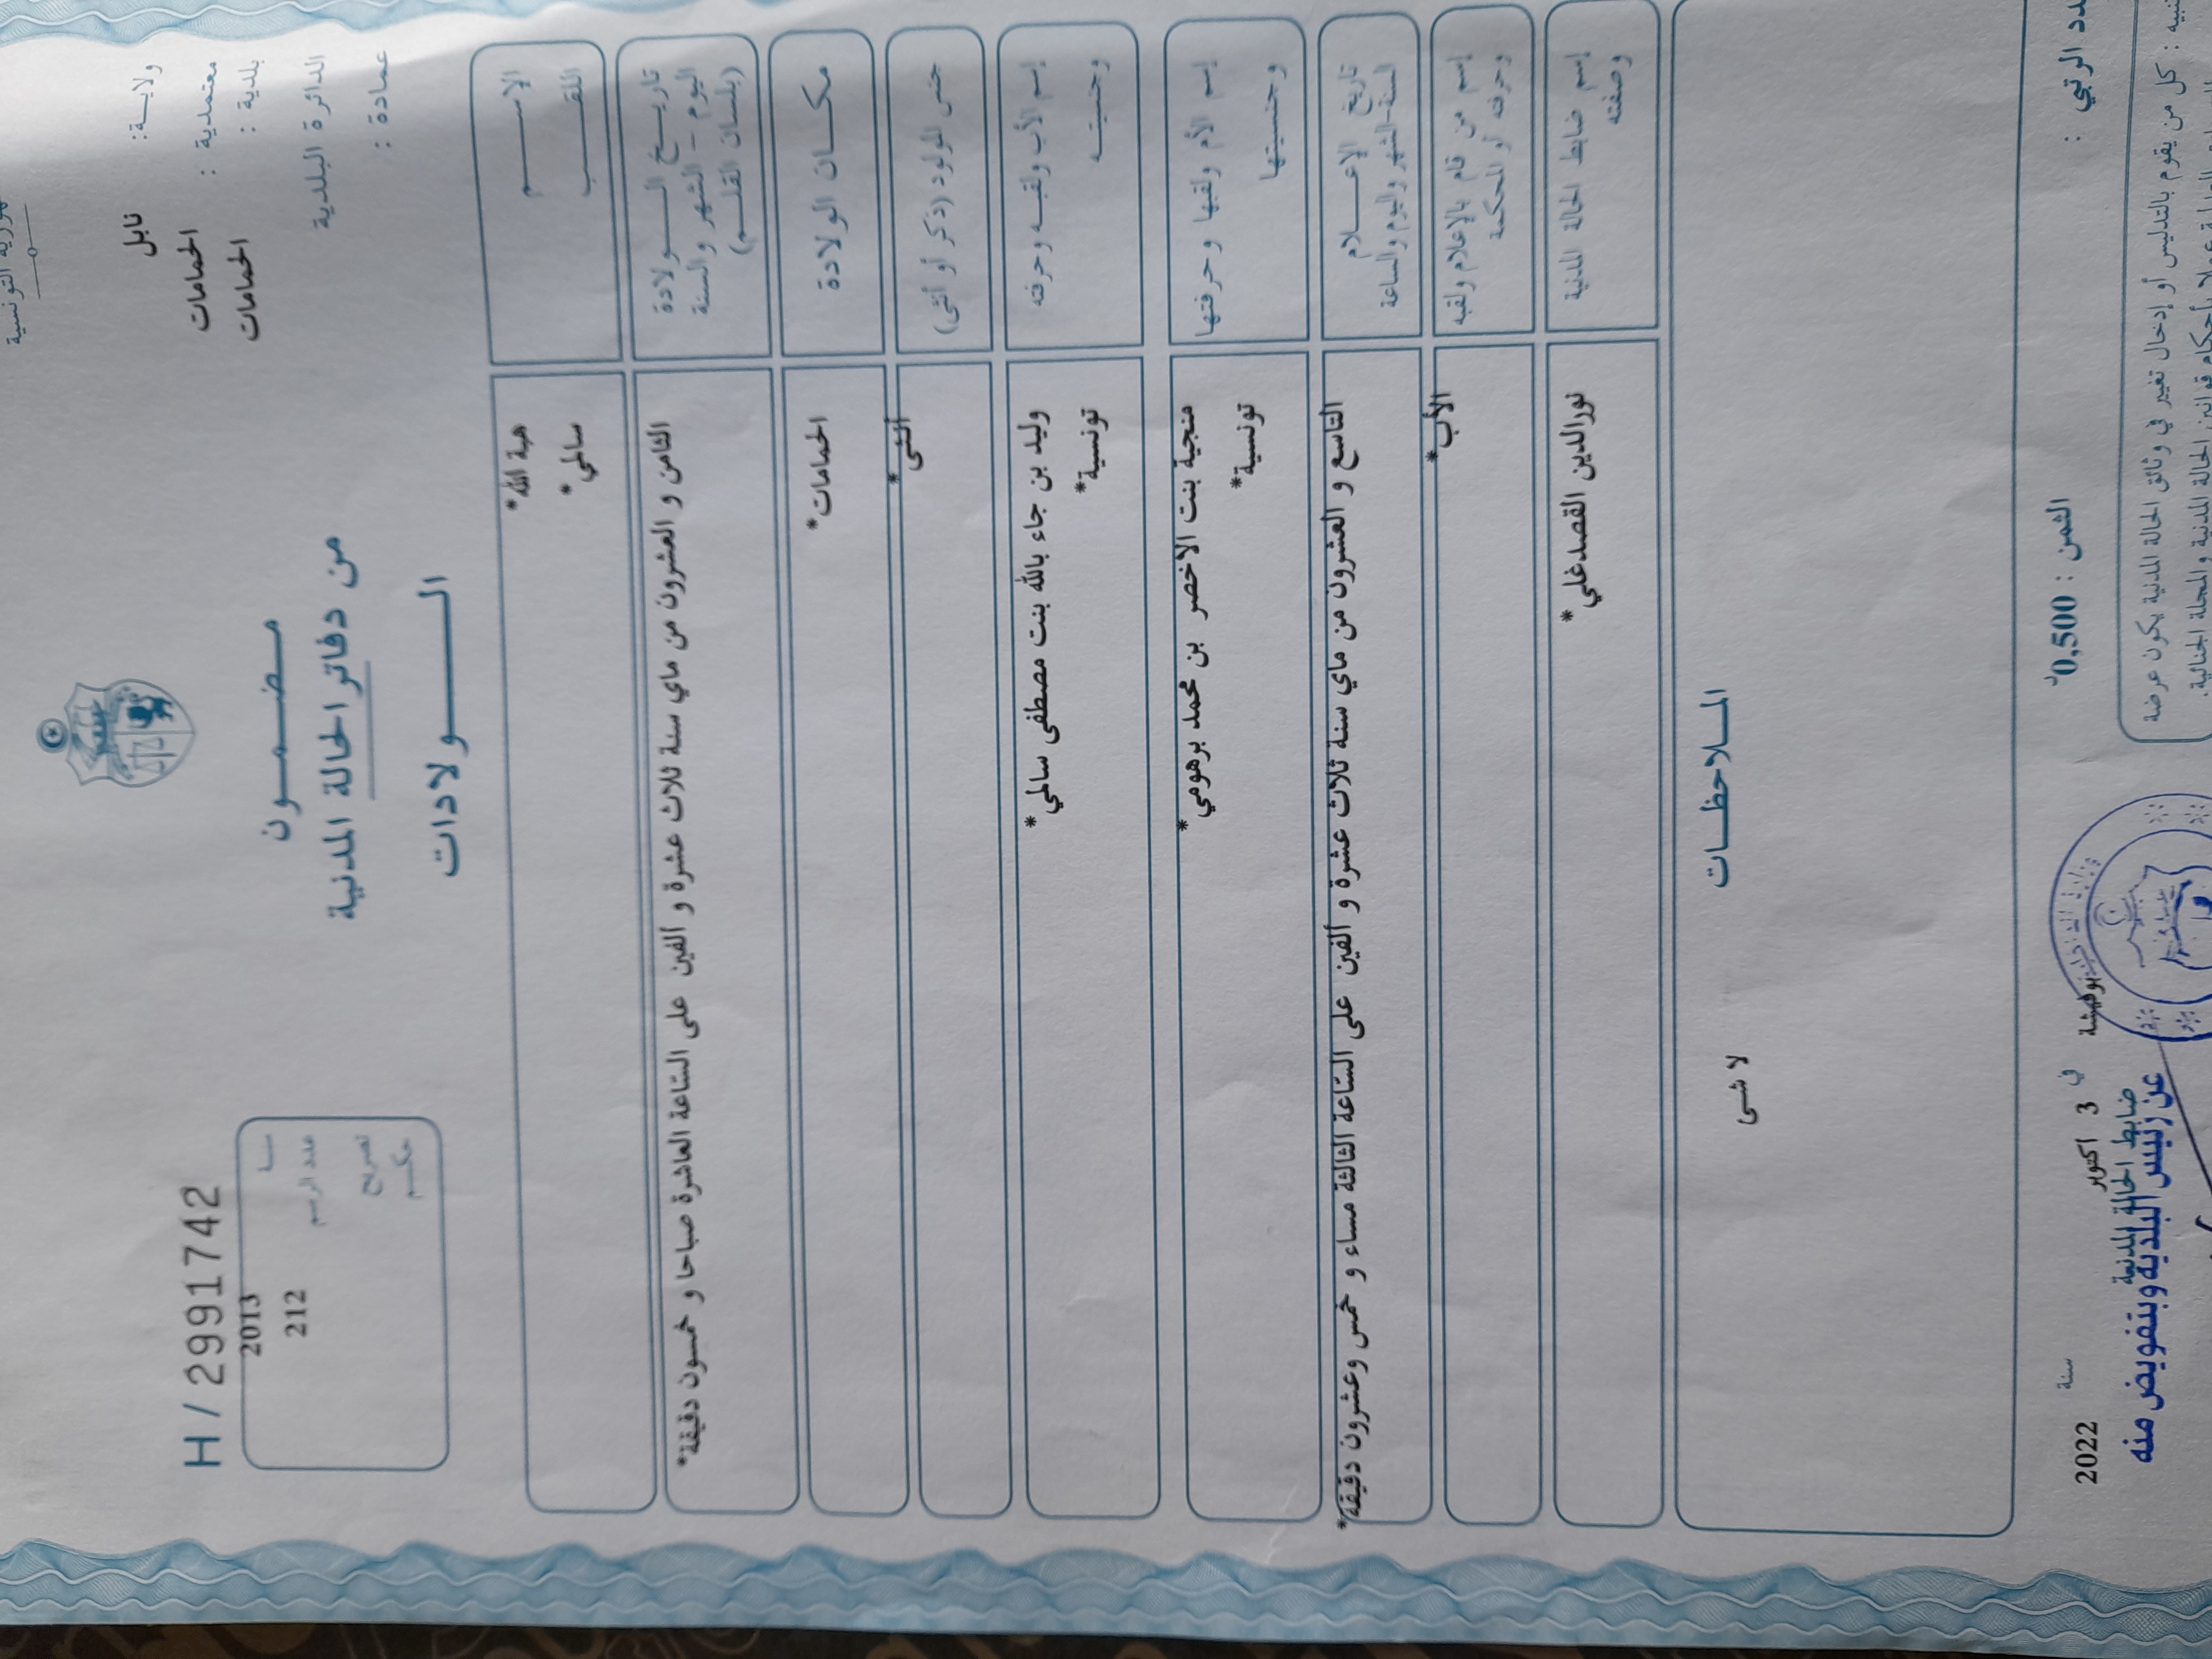 ولايـــة: نابل
معتمدية : الحمامات
بلدية : الحمامات
الدائرة البلدية
عمادة :
H / 2991742
2013
عدد الرسم 212
تصريح
حكـــم
مـضـمـــون
من دفاتر الحالة المدنية
الــــــولادات
الإســـــم هبة الله*
اللقـــب سالمي*
تاريـــخ الـــــولادة
اليوم – الشهر والسنة
(بلسان القلـــم)
الثامن و العشرون من ماي سنة ثلاث عشرة و ألفين على الساعة العاشرة صباحا و خمسون دقيقة*
مكـــان الولادة الحمامات*
جنس المولود (ذكر أو أنثى) أنثى*
إسم الأب ولقبـــه وحرفته وليد بن جاء بالله بنت مصطفى سالمي*
وجنسيتـــه تونسية*
إسم الأم ولقبها وحرفتها منجية بنت الاخضر بن محمد برهومي*
وجنسيتها تونسية*
تاريخ الإعـــــلام
السنة-الشهر واليوم والساعة
التاسع و العشرون من ماي سنة ثلاث عشرة و ألفين على الساعة الثالثة مساء و خمس وعشرون دقيقة*
إسم من قام بالإعلام ولقبه الأب*
وحرفته أو المحكمة
إسم ضابط الحالة المدنية نورالدين القصدغلي*
وصفته
المـــلاحظـــات
لا شى
الرتبي :
الثمن : 0,500د
بوفيشة في 3 اكتوبر سنة 2022
ضابط الحالة المدنية
عن رئيس البلدية وبتفويض منه
كل من يقوم بالتدليس أو إدخال تغيير في وثائق الحالة المدنية يكون عرضة
لأحكام قوانين الحالة المدنية والمجلة الجنائية.